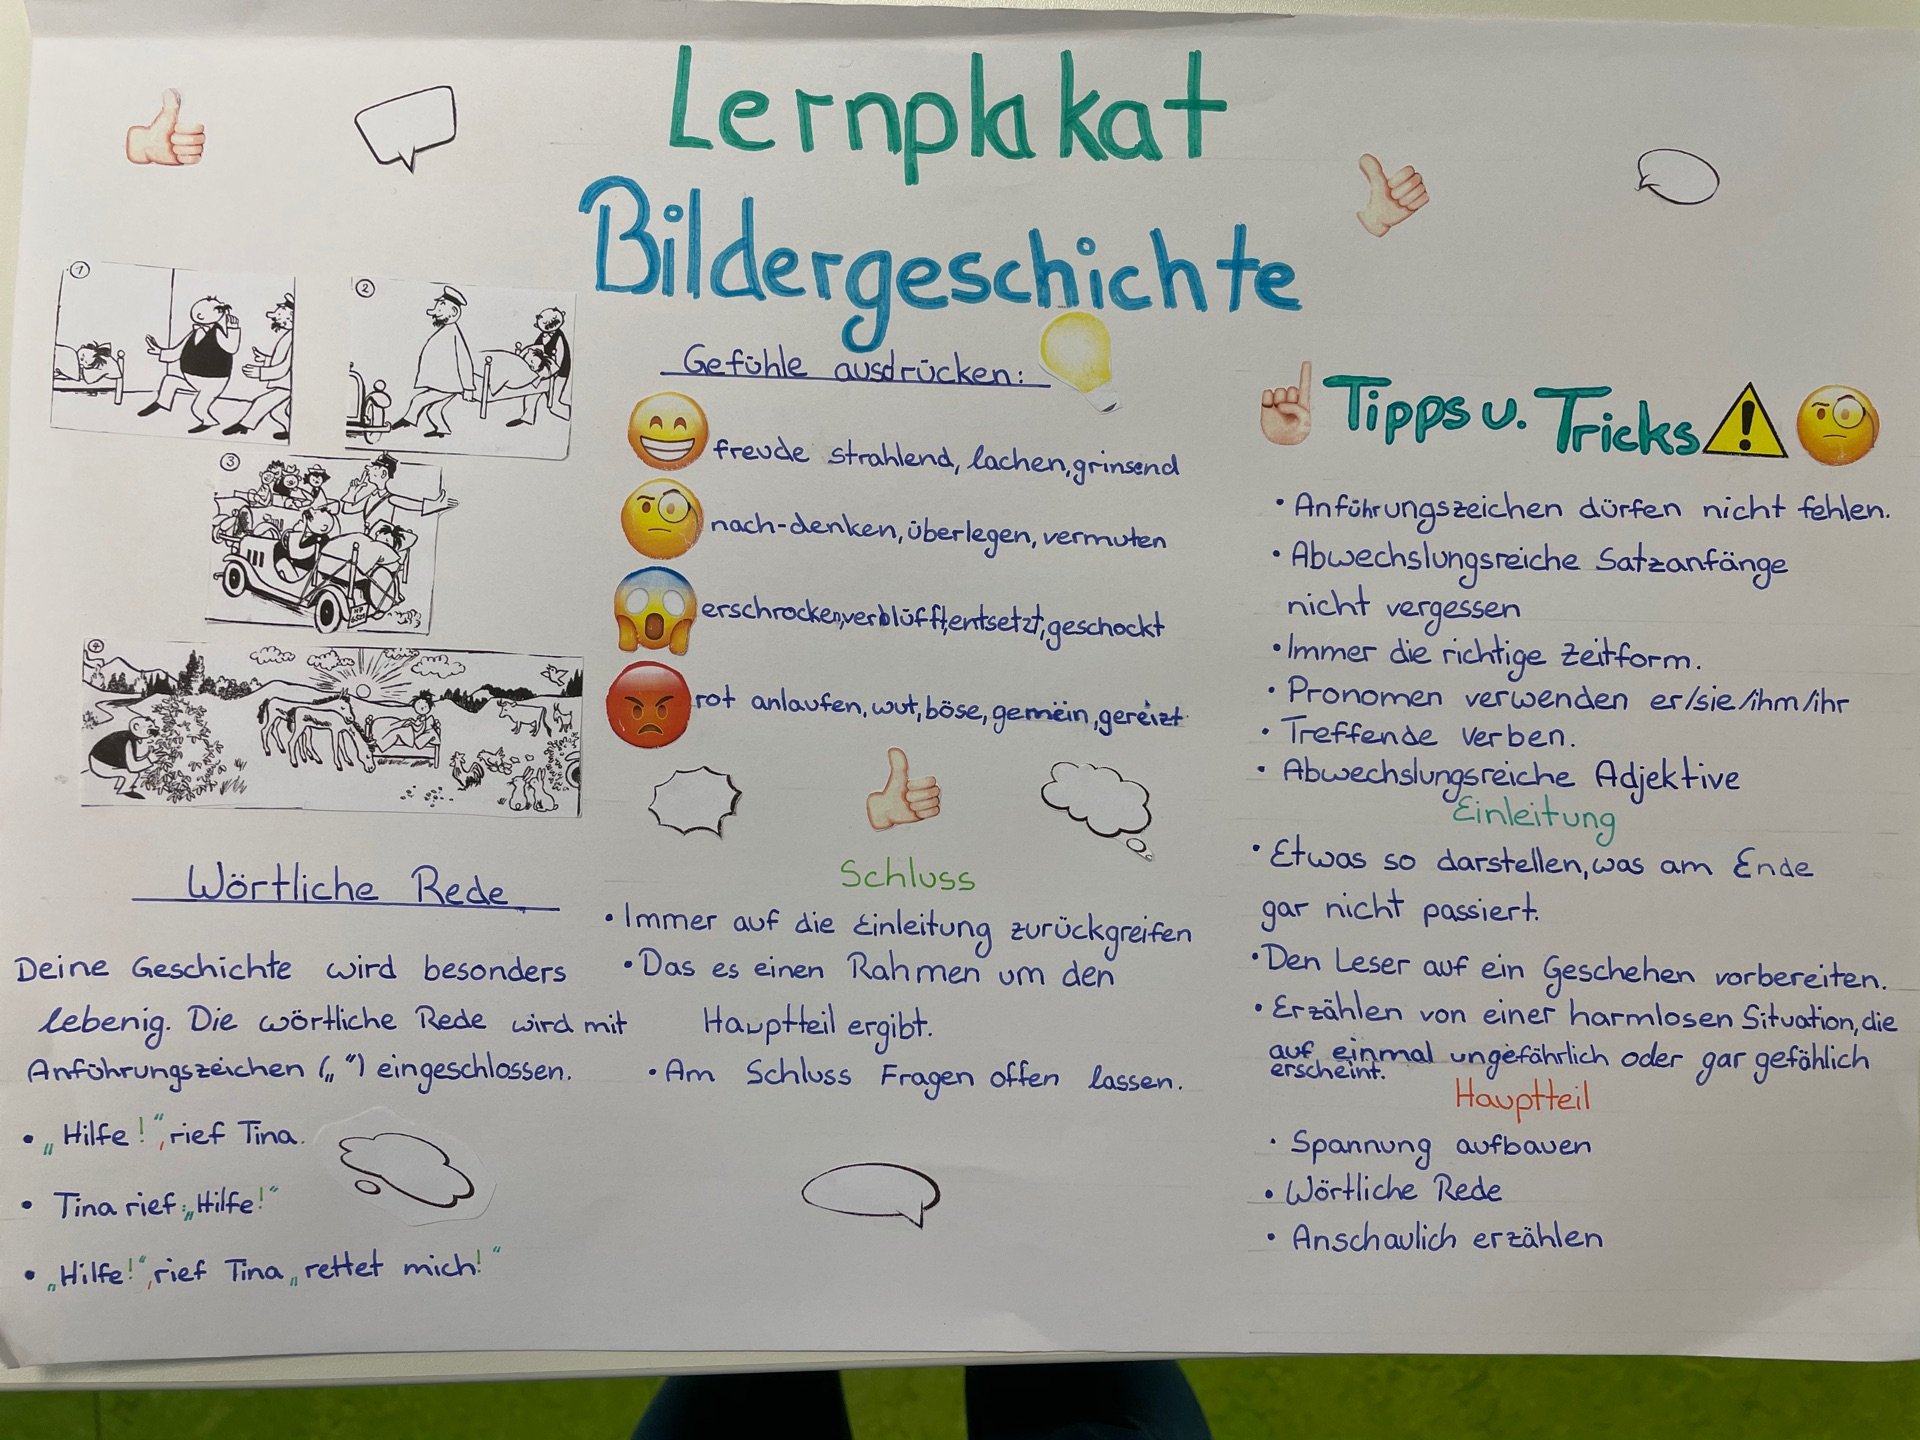 Lernplakat
Bildergeschichte
1
2
3
4
Wörtliche Rede
Deine Geschichte wird besonders
lebenig. Die wörtliche Rede wird mit
Anführungszeichen („ “) eingeschlossen.
• „Hilfe!“, rief Tina.
• Tina rief: „Hilfe!“
• „Hilfe!“, rief Tina „rettet mich!“
Gefühle ausdrücken:
freude strahlend, lachen, grinsend
nach-denken, überlegen, vermuten
erschrocken, verblüfft, entsetzt, geschockt
rot anlaufen, wut, böse, gemein, gereizt
Schluss
• Immer auf die Einleitung zurückgreifen
• Das es einen Rahmen um den
Hauptteil ergibt.
• Am Schluss Fragen offen lassen.
Tipps u. Tricks
• Anführungszeichen dürfen nicht fehlen.
• Abwechslungsreiche Satzanfänge
nicht vergessen
• Immer die richtige Zeitform.
• Pronomen verwenden er/sie/ihm/ihr
• Treffende Verben.
• Abwechslungsreiche Adjektive
Einleitung
• Etwas so darstellen, was am Ende
gar nicht passiert.
• Den Leser auf ein Geschehen vorbereiten.
• Erzählen von einer harmlosen Situation, die
auf einmal ungefährlich oder gar gefählich
erscheint.
Hauptteil
• Spannung aufbauen
• Wörtliche Rede
• Anschaulich erzählen